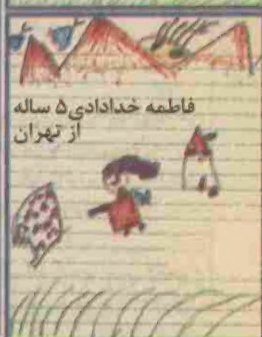 فاطمه خدادادی۵ ساله
از تهران